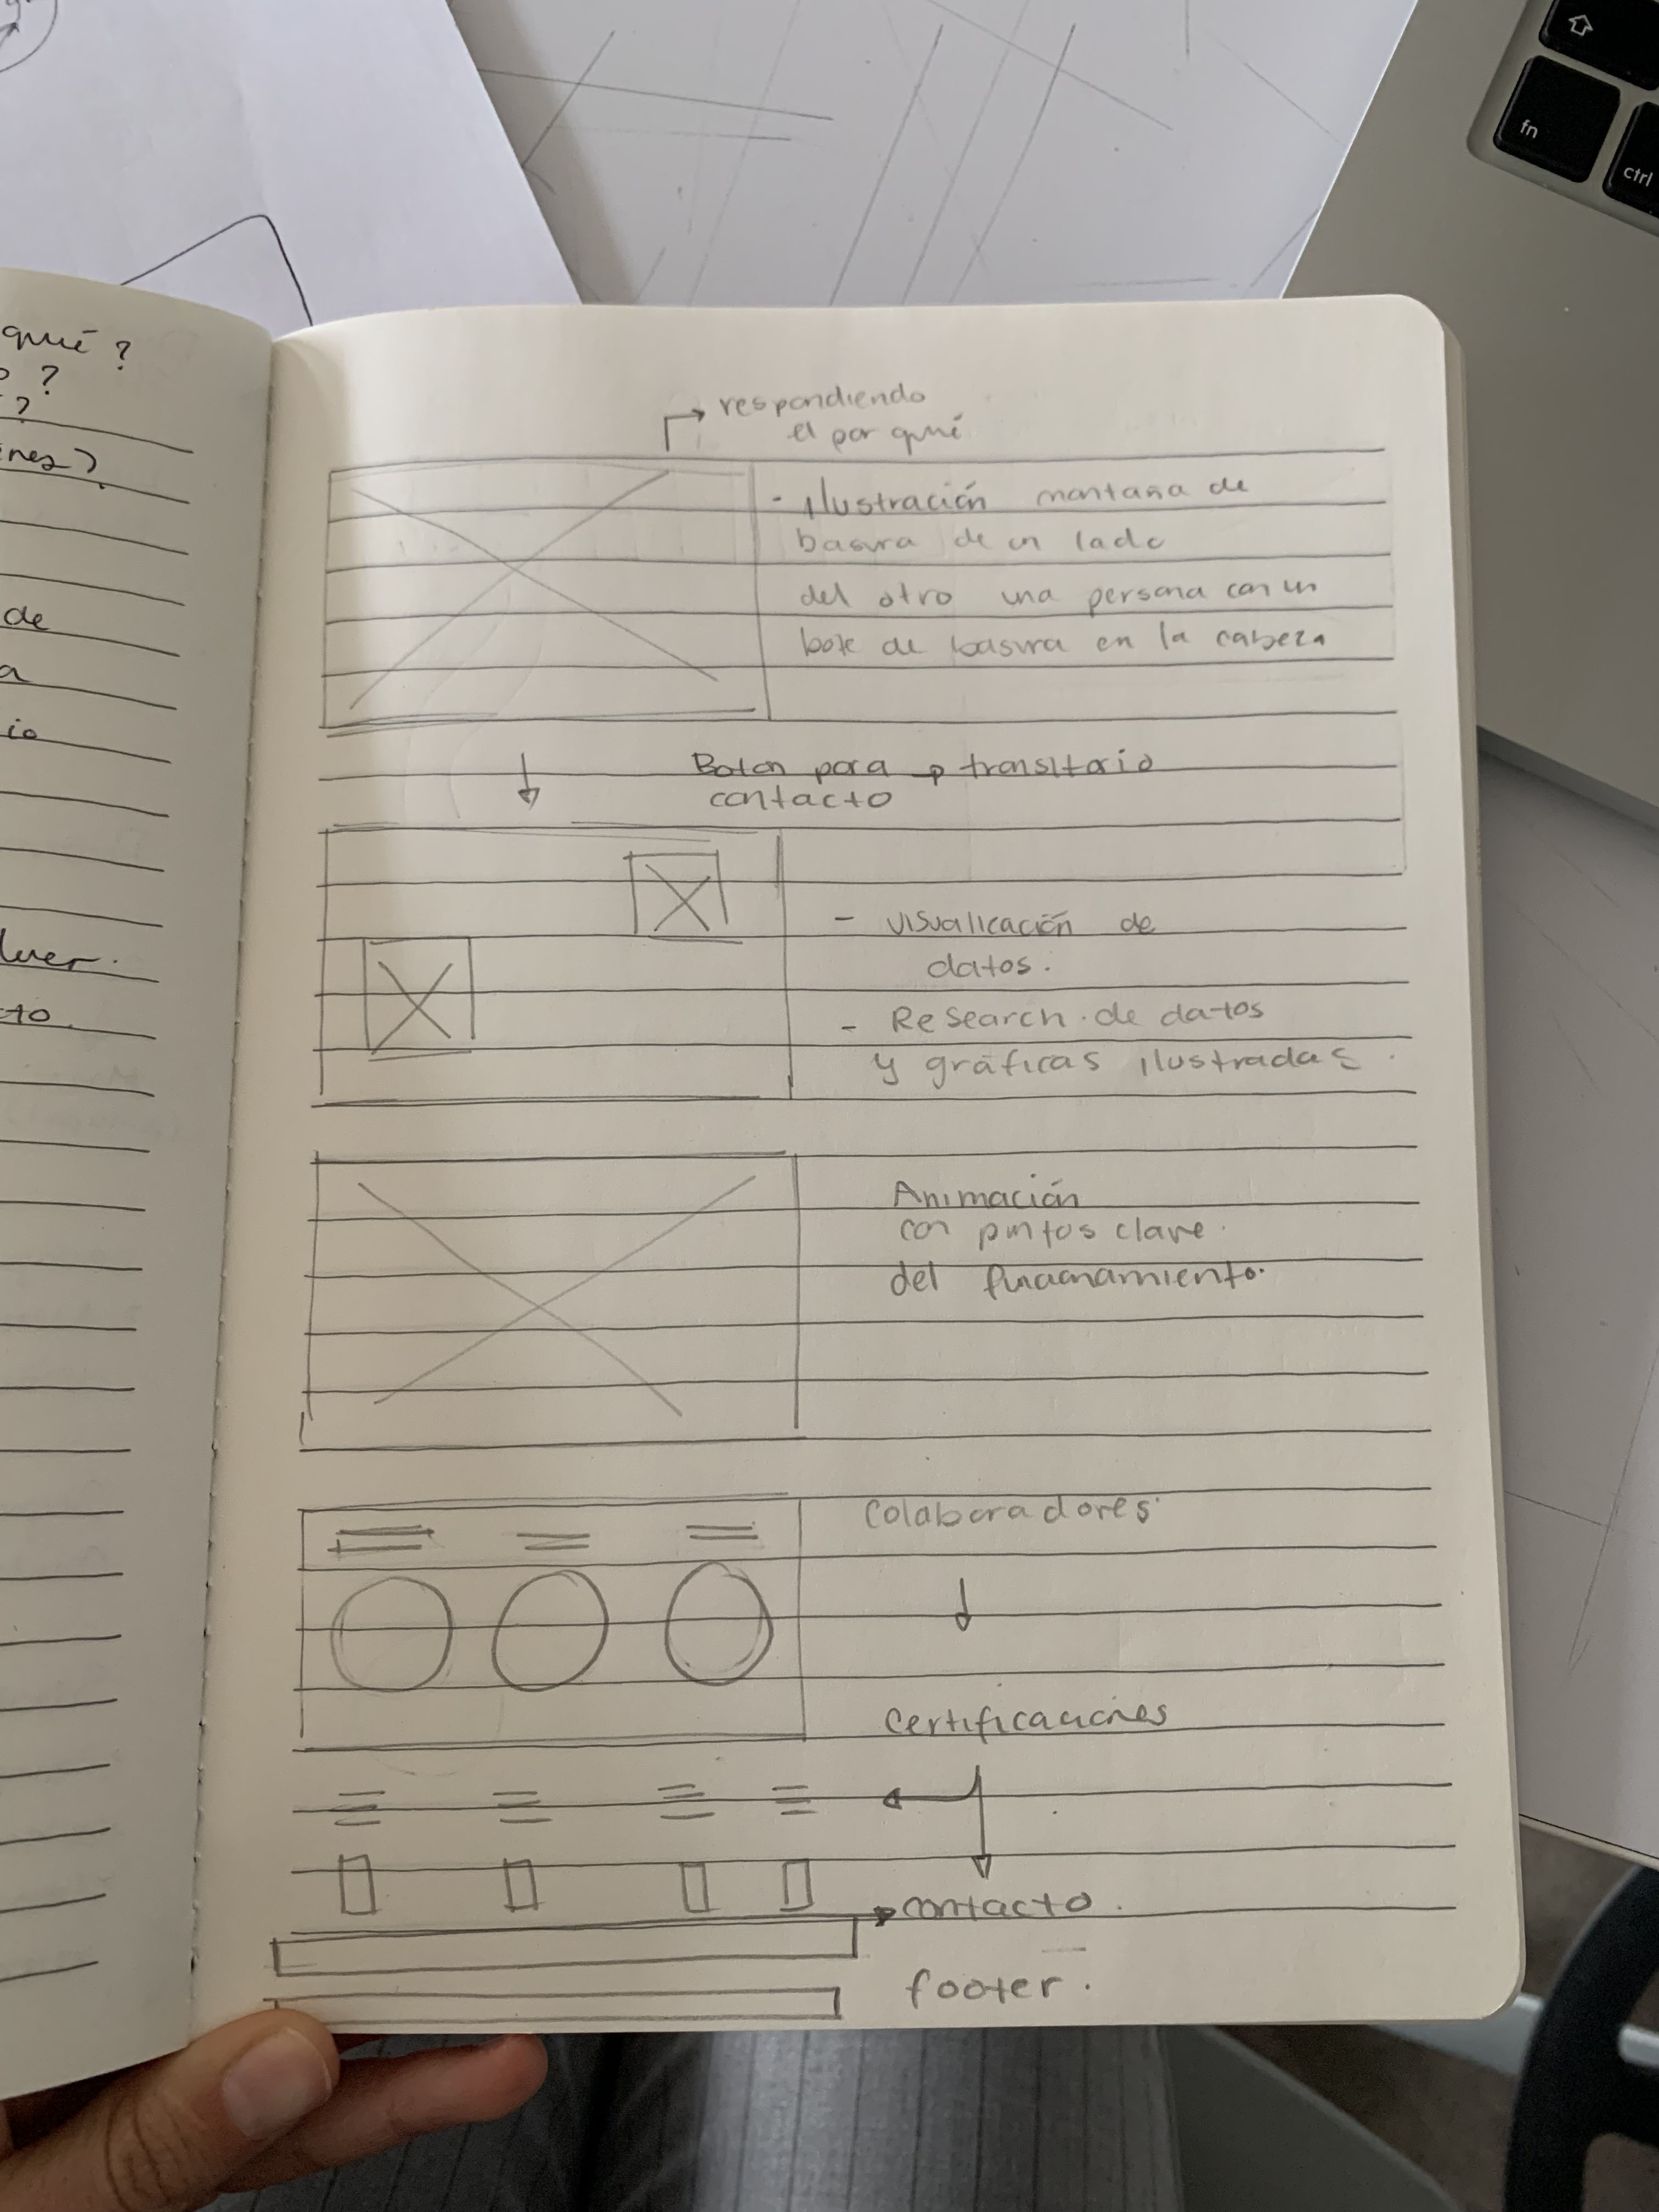 qué ?
?
?
de
a
io
lver.
cto.
respondiendo
el por qué
- Ilustración montaña de
basura de un lado
del otro una persona con un
bote de basura en la cabeza
Boton para → transitorio
contacto
- visualicación de
datos.
- Research de datos
y gráficas ilustradas.
Animación
con puntos clave.
del funcionamiento.
Colaboradores
Certificaciones
contacto.
footer.
fn
ctrl